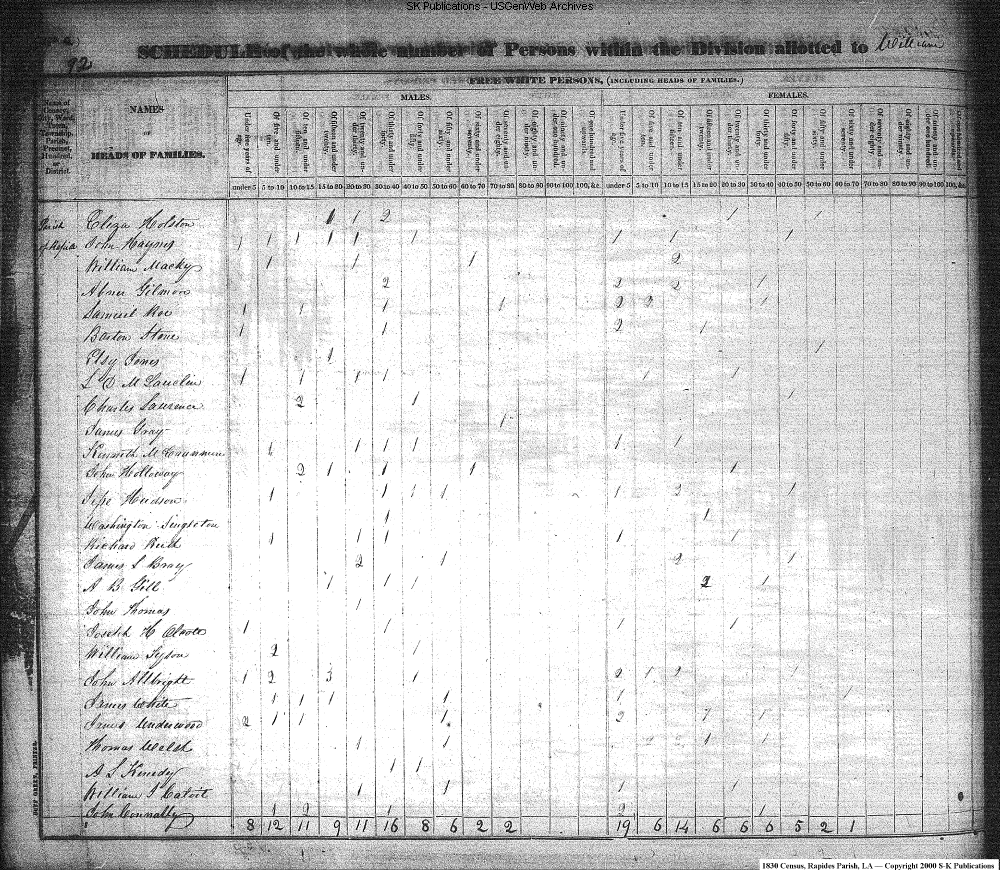 SK Publications - USGenWeb Archives
92
SCHEDULE of the whole number of Persons within the Division allotted to William
FREE WHITE PERSONS, (INCLUDING HEADS OF FAMILIES.)
MALES. FEMALES.
NAMES
OF
HEADS OF FAMILIES.
under 5 5 to 10 10 to 15 15 to 20 20 to 30 30 to 40 40 to 50 50 to 60 60 to 70 70 to 80 80 to 90 90 to 100 100, &c. under 5 5 to 10 10 to 15 15 to 20 20 to 30 30 to 40 40 to 50 50 to 60 60 to 70 70 to 80 80 to 90 90 to 100 100, &c.
Parish Eliza Holston 1 1 2 1 1
of Rapide John Haynes 1 1 1 1 1 1 1 1 1
William Macky 1 1 1 2
Abner Gilmore 2 2 2 1
Samuel Roe 1 1 1 1 2 2 1
Barton Stone 1 1 2 1
Elsy Jones 1 1
L D M Lauclin 1 1 1 1 1 1
Charles Laurence 2 1 1
James Gray 1
Kenneth M Crummen 1 1 1 1 1
John Holloway 2 1 1 1 1
Jesse Hudson 1 1 1 1 1 2 1
Washington Singleton 1 1
Richard Reid 1 1 1 1 1
James L Bray 2 1 2 1
A B Gill 1 1 1 2 1
John Thomas 1
Joseph H 1 1 1 1
William Tyson 2 1
John Allbright 1 2 3 1 2 1 2 1
James White 1 1 1 1 1 1
Underwood 2 1 1 1 2 1 1
Thomas Walsh 1 1 1 1
A L Kenedy 1 1
William J 1 1 1 1
John Connally 1 2 1 2 1
8 12 11 9 11 16 8 6 2 2 19 6 14 6 6 6 5 2 1
DUFF GREEN, PRINTER.
1830 Census, Rapides Parish, LA — Copyright 2000 S-K Publications